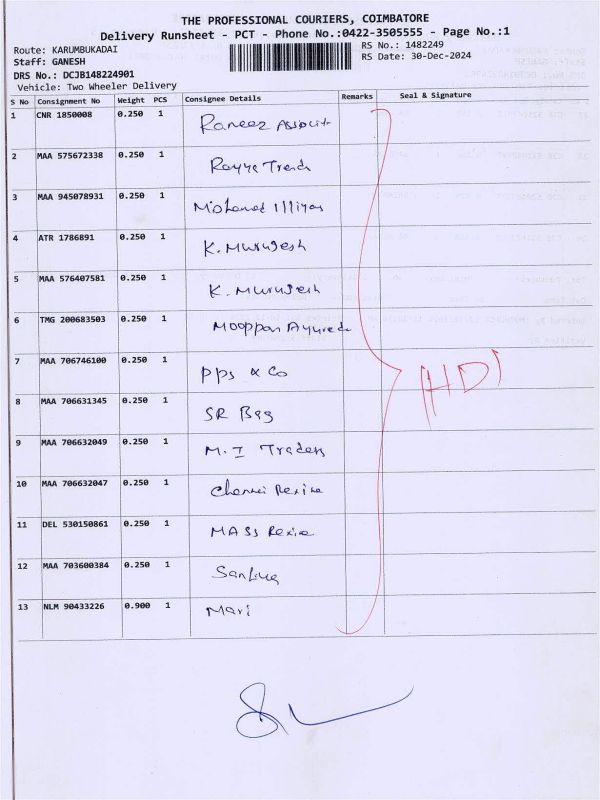 THE PROFESSIONAL COURIERS, COIMBATORE
Delivery Runsheet - PCT - Phone No.:0422-3505555 - Page No.:1
Route: KARUMBUKADAI
RS No.: 1482249
Staff: GANESH
RS Date: 30-Dec-2024
DRS No.: DCJB148224901
Vehicle: Two Wheeler Delivery
S No Consignment No Weight PCS Consignee Details Remarks Seal & Signature
1 CNR 1850008 0.250 1 Rameez
2 MAA 575672338 0.250 1
3 MAA 945078931 0.250 1 Mohamed Illiyas
4 ATR 1786891 0.250 1 K. Murugesh
5 MAA 576407581 0.250 1 K. Murugesh
6 TMG 200683503 0.250 1 Mooppan Ayurveda
7 MAA 706746100 0.250 1 PPS & Co
8 MAA 706631345 0.250 1 SR Bag
9 MAA 706632049 0.250 1 M. I Traders
10 MAA 706632047 0.250 1 Chennai Rexine
11 DEL 530150861 0.250 1 MASS Rexine
12 MAA 703600384 0.250 1
13 NLM 90433226 0.900 1 Mari
HD